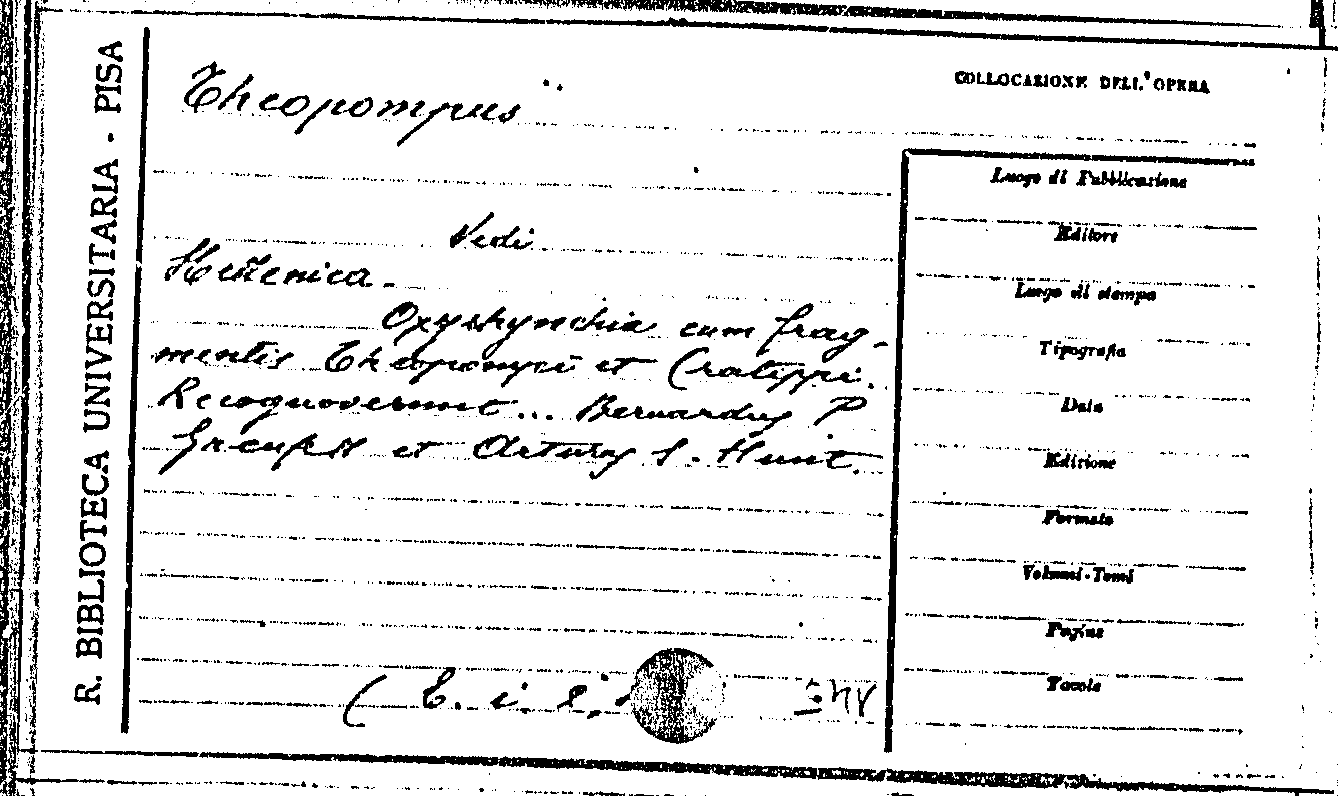 R. BIBLIOTECA UNIVERSITARIA - PISA
Theopompus
COLLOCAZIONE DELL'OPERA
Vedi
Hellenica -
Oxyrhynchia cum frag-
mentis Theopompi et Cratippi.
Recognoverunt... Bernardus P
Grenfell et Arturus S. Hunt.
Luogo di Pubblicazione
Editore
Luogo di stampa
Tipografia
Data
Edizione
Formato
Volumi-Tomi
Pagine
Tavole